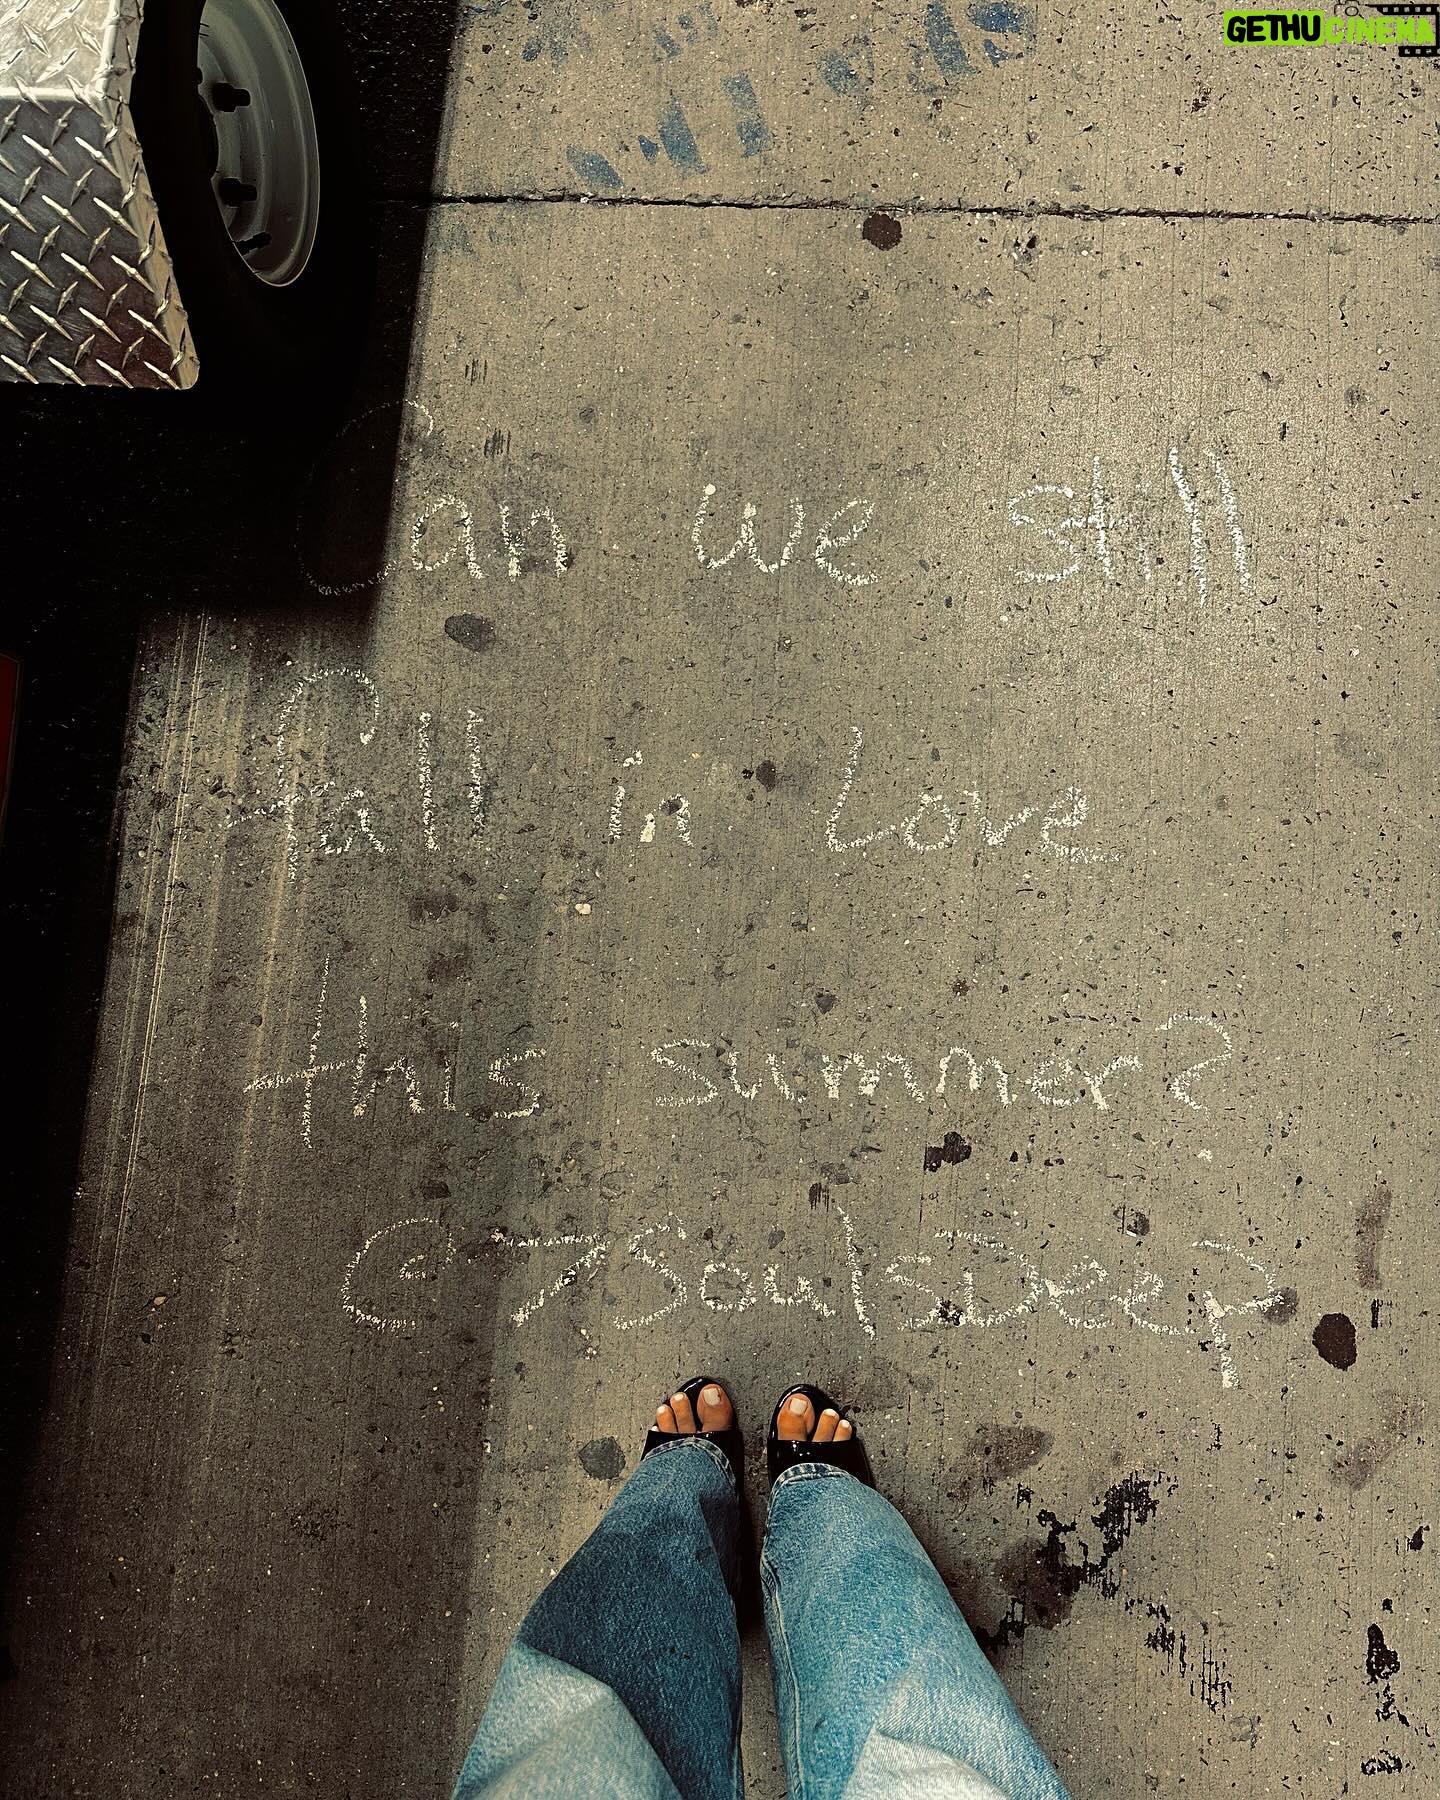 GETHUCINEMA
Can we still
fall in Love
this summer?
@7SoulsDeep